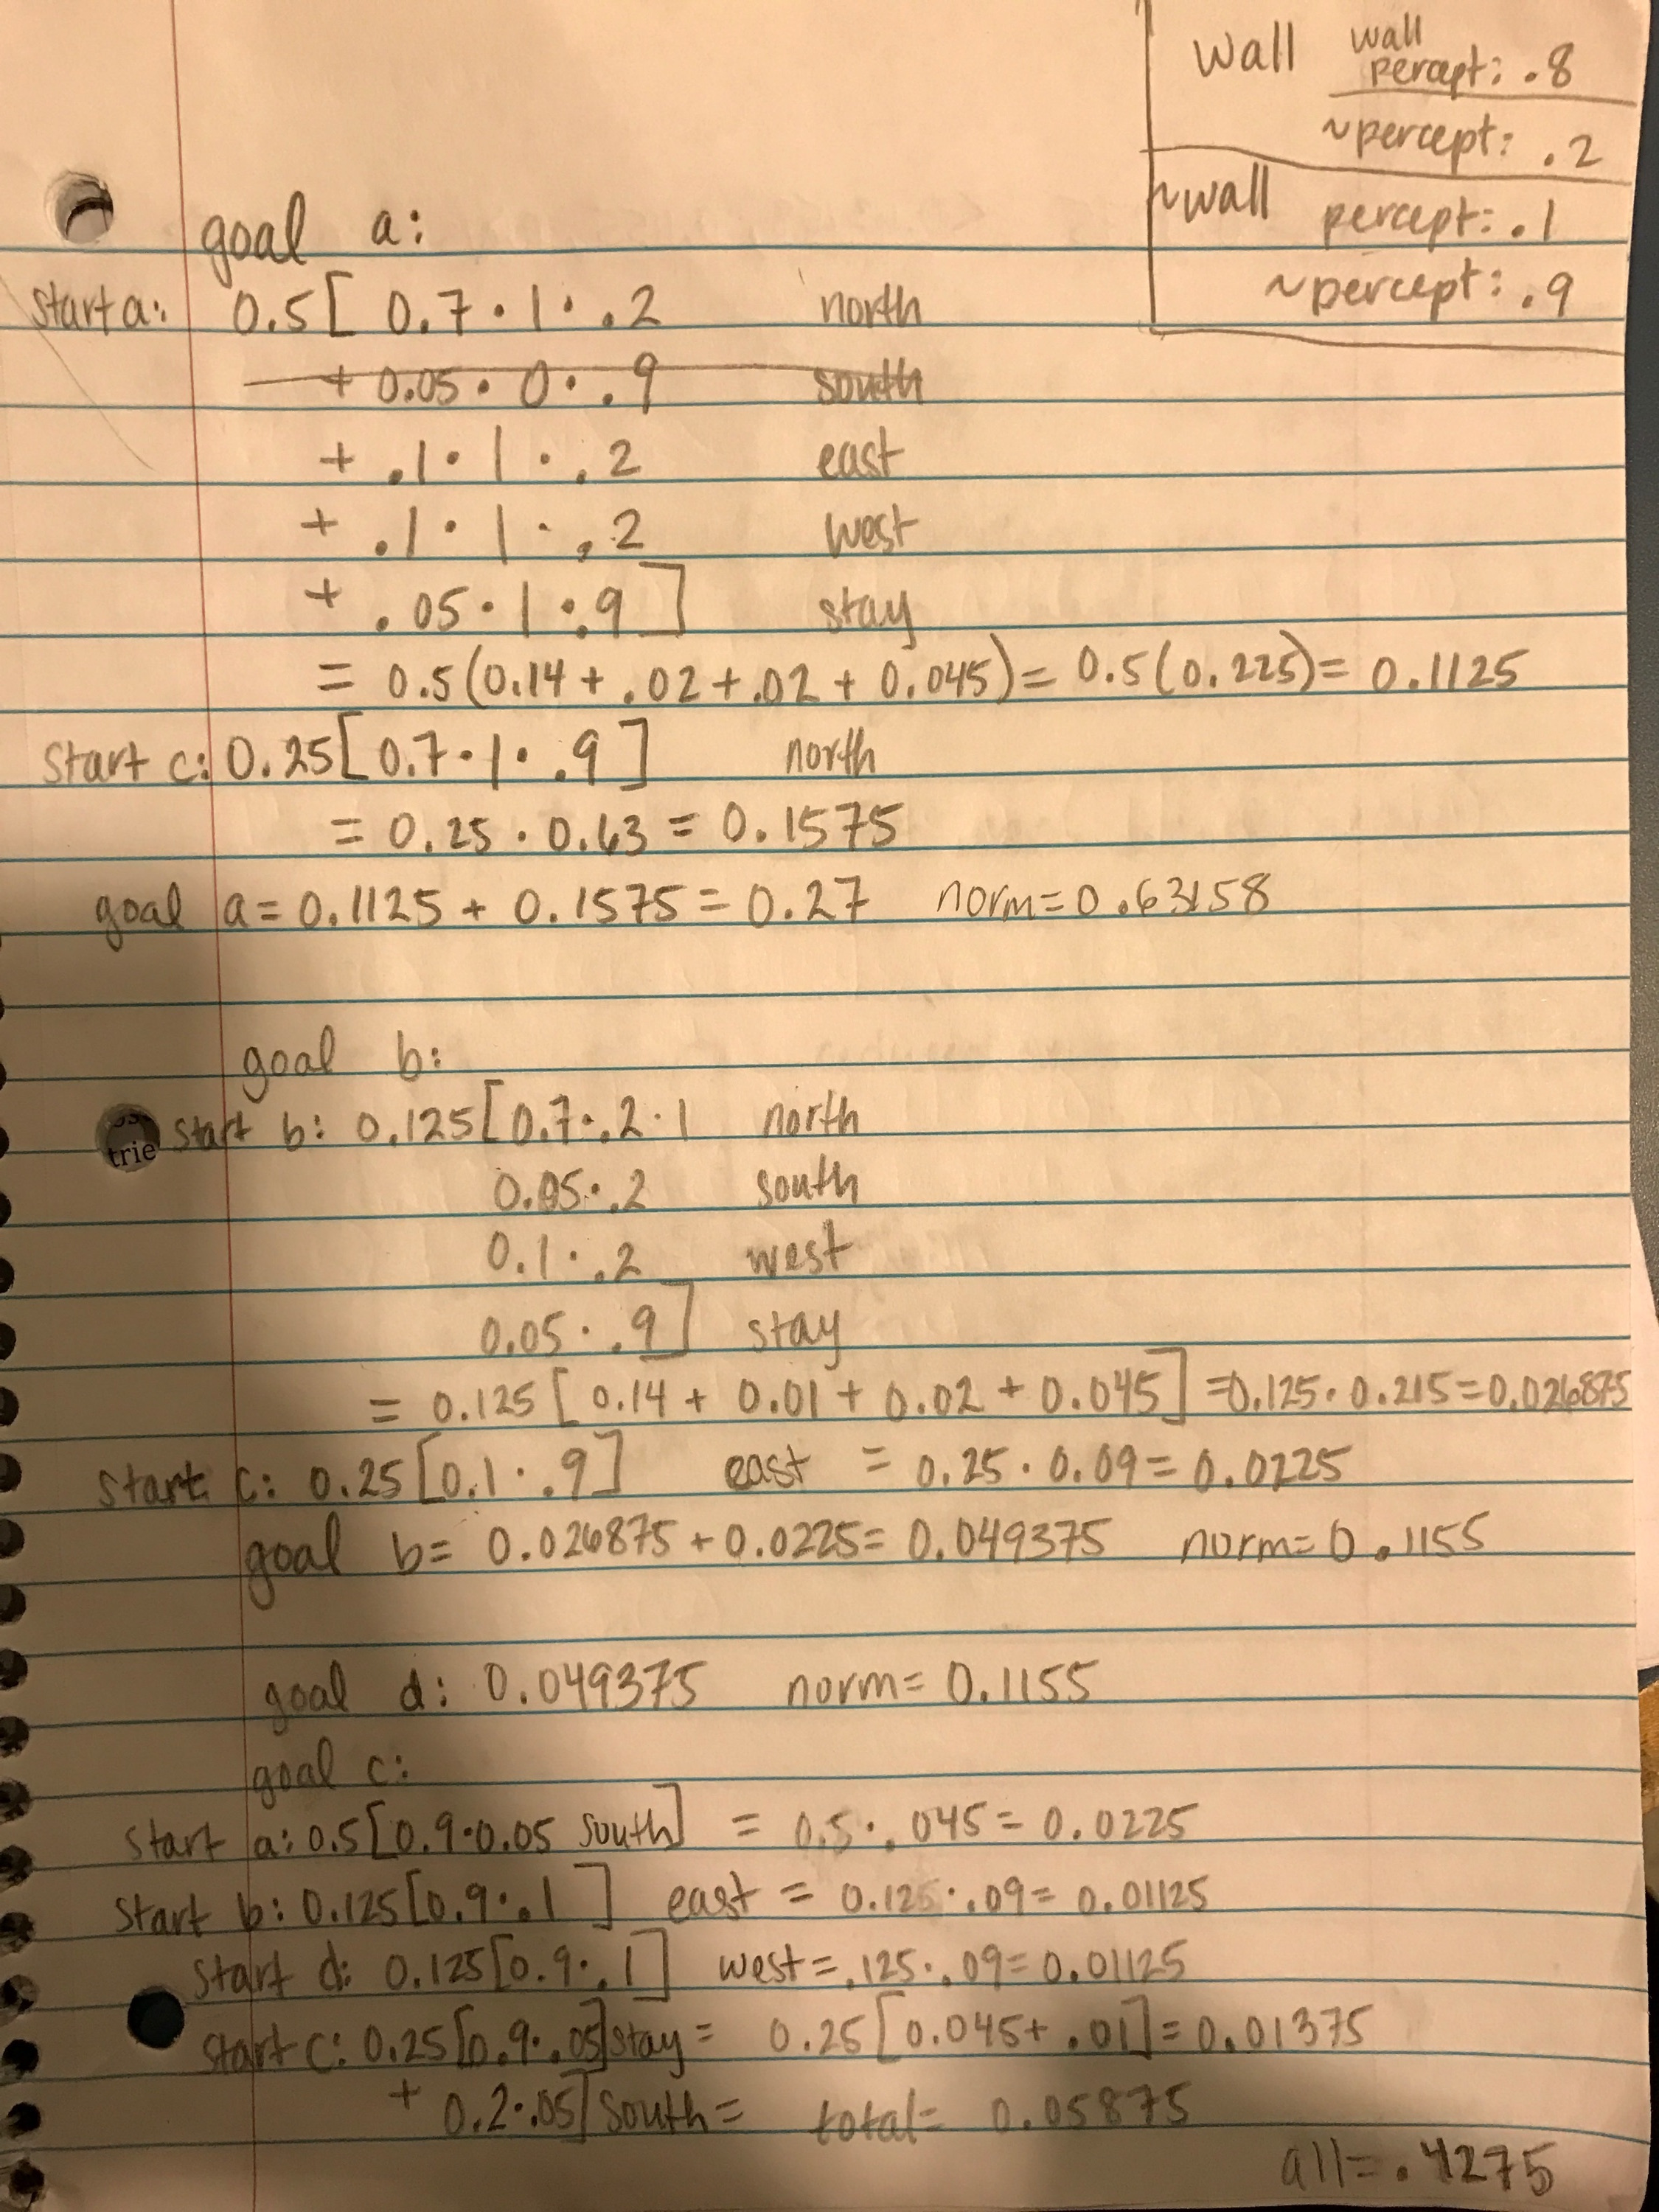 wall wall
percept: .8
~percept: .2
~wall percept: .1
~percept: .9
goal a:
start a: 0.5[ 0.7 · 1 · .2 north
+ 0.05 · 0 · .9 south
+ .1 · 1 · .2 east
+ .1 · 1 · .2 west
+ .05 · 1 · .9 ] stay
= 0.5(0.14 + .02 + .02 + 0.045) = 0.5(0.225) = 0.1125
start c: 0.25[0.7 · 1 · .9 ] north
= 0.25 · 0.63 = 0.1575
goal a = 0.1125 + 0.1575 = 0.27 norm = 0.63158
goal b:
trie start b: 0.125[0.7 · .2 · 1 north
0.05 · .2 south
0.1 · .2 west
0.05 · .9] stay
= 0.125 [ 0.14 + 0.01 + 0.02 + 0.045] = 0.125 · 0.215 = 0.026875
start c: 0.25[0.1 · .9] east = 0.25 · 0.09 = 0.0225
goal b = 0.026875 + 0.0225 = 0.049375 norm = 0.1155
goal d: 0.049375 norm = 0.1155
goal c:
start a: 0.5[0.9 · 0.05 south] = 0.5 · .045 = 0.0225
start b: 0.125[0.9 · .1 ] east = 0.125 · .09 = 0.01125
start d: 0.125[0.9 · .1] west = .125 · .09 = 0.01125
start c: 0.25[0.9 · .05] stay = 0.25[0.045 + .01] = 0.01375
+ 0.2 · .05] south = total = 0.05875
all = .4275